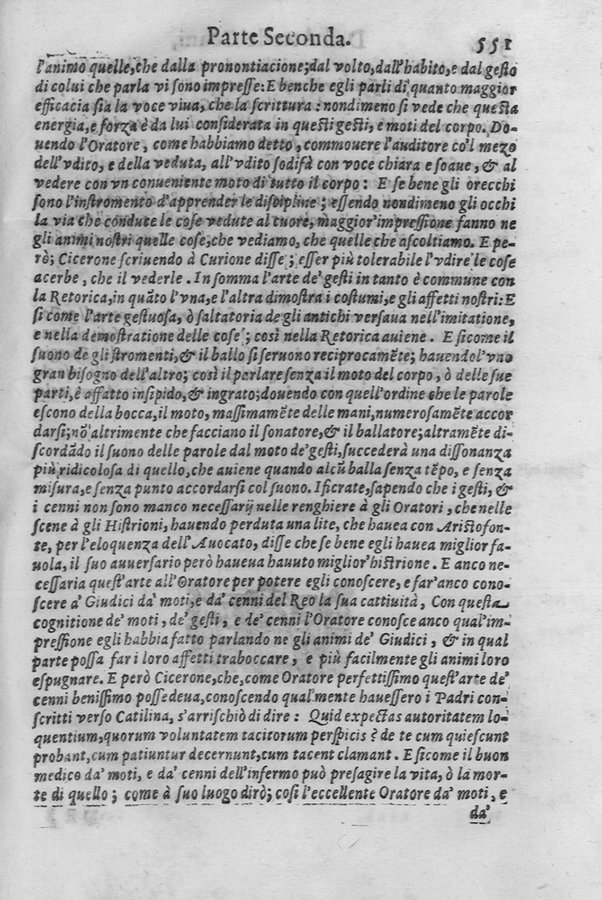 Parte Seconda. 551
l'animo quelle, che dalla prononciacione; dal volto, dall'habito, e dal gesto
di colui che parla vi sono impresse: E benche egli parli di quanto maggior
efficacia sia la voce viua, che la scrittura: nondimeno si vede che questa
energia, e forza è da lui considerata in questi gesti, e moti del corpo. Do-
uendo l'Oratore, come habbiamo detto, commouere l'auditore co'l mezo
dell'vdito, e della veduta, all'vdito sodisfà con voce chiara e soaue, & al
vedere con vn conueniente moto di tutto il corpo: E se bene gli orecchi
sono l'instromento d'apprender le discipline; essendo nondimeno gli occhi
la via che condute le cose vedute al cuore, maggior'impressione fanno ne
gli animi nostri quelle cose, che vediamo, che quelle che ascoltiamo. E pe-
rò; Cicerone scriuendo à Curione disse; esser più tolerabile l'vdire le cose
acerbe, che il vederle. In somma l'arte de' gesti in tanto è commune con
la Retorica, in quãto l'vna, e l'altra dimostra i costumi, e gli affetti nostri: E
si come l'arte gestuosa, ò saltatoria de gli antichi versaua nell'imitatione,
e nella demostratione delle cose; così nella Retorica auiene. E sicome il
suono de gli stromenti, & il ballo si seruono reciprocamẽte; hauendo l'vno
gran bisogno dell'altro; così il parlare senza il moto del corpo, ò delle sue
parti, è affatto insipido, & ingrato; douendo con quell'ordine che le parole
escono della bocca, il moto, massimamẽte delle mani, numerosamẽte accor
darsi; nõ altrimente che facciano il sonatore, & il ballatore; altramẽte di-
scordãdo il suono delle parole dal moto de' gesti, succederà una dissonanza
più ridicolosa di quello, che auiene quando alcũ balla senza tẽpo, e senza
misura, e senza punto accordarsi col suono. Ificrate, sapendo che i gesti, &
i cenni non sono manco necessarij nelle renghiere à gli Oratori, che nelle
scene à gli Histrioni, hauendo perduta una lite, che hauea con Aristofon-
te, per l'eloquenza dell'Auocato, disse che se bene egli hauea miglior fa-
uola, il suo auuersario però haueua hauuto miglior'histrione. E anco ne-
cessaria quest'arte all'Oratore per potere egli conoscere, e far'anco cono-
scere a' Giudici da' moti, e da' cenni del Reo la sua cattiuità, Con questa
cognitione de' moti, de' gesti, e de' cenni l'Oratore conosce anco qual'im-
pressione egli habbia fatto parlando ne gli animi de' Giudici, & in qual
parte possa far i loro affetti traboccare, e più facilmente gli animi loro
espugnare. E però Cicerone, che, come Oratore perfettissimo quest'arte de'
cenni benissimo possedeua, conoscendo qual mente hauessero i Padri con-
scritti verso Catilina, s'arrischiò di dire: Quid expectas autoritatem lo-
quentium, quorum voluntatem tacitorum perspicis? de te cum quiescunt
probant, cum patiuntur decernunt, cum tacent clamant. E sicome il buon
medico da' moti, e da' cenni dell'infermo può presagire la vita, ò la mor-
te di quello; come à suo luogo dirò; così l'eccellente Oratore da' moti, e
da'